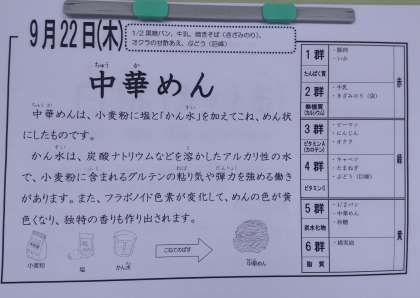 9月22日(木)
1/2黒糖パン、牛乳、焼きそば(きざみのり)、
オクラの甘酢あえ、ぶどう(巨峰)
ちゅう か
中華めん
ちゅうか すい
中華めんは、小麦粉に塩と「かん水」を加えてこね、めん状
にしたものです。
かん水は、炭酸ナトリウムなどを溶かしたアルカリ性の水
で、小麦粉に含まれるグルテンの粘り気や弾力を強める働き
があります。また、フラボノイド色素が変化して、めんの色が黄
色くなり、独特の香りも作り出されます。
小麦粉
塩
かん水
こねてのばす
中華めん
1群
たんぱく質
・豚肉
・いか
2群
無機質
(カルシウム)
・牛乳
・きざみのり(袋)
赤
3群
ビタミンA
(カロテン)
・ピーマン
・にんじん
・オクラ
4群
ビタミンC
・キャベツ
・たまねぎ
・ぶどう(巨峰)
緑
5群
炭水化物
・1/2パン
・中華めん
・砂糖
6群
脂質
黄